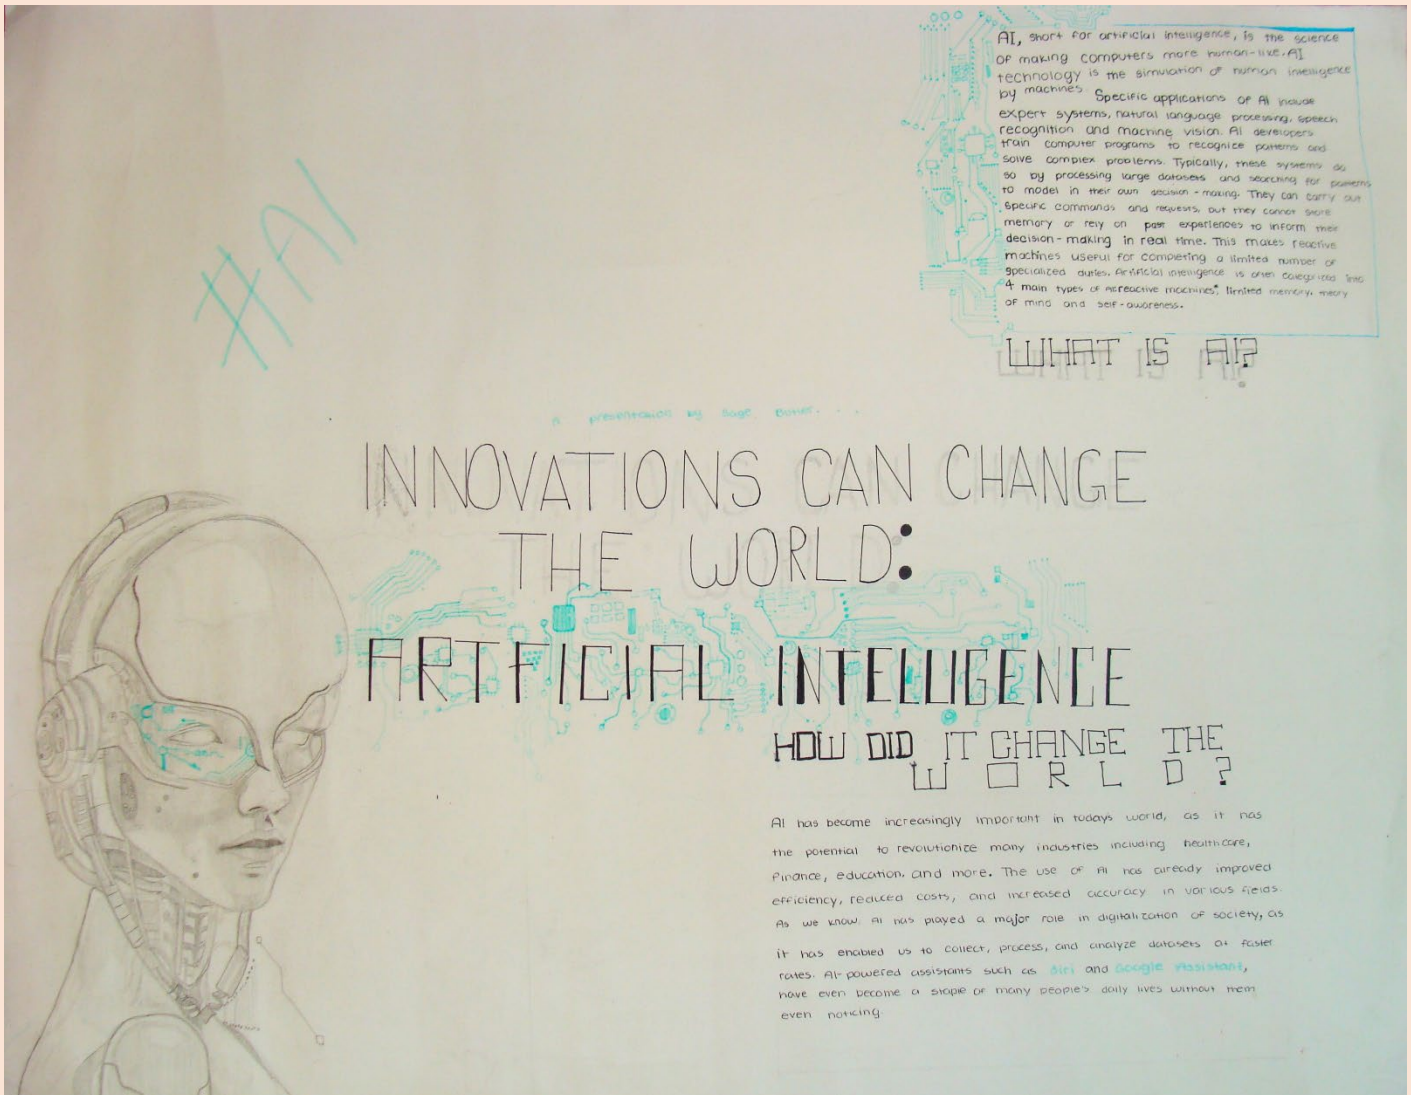 AI, short for artificial intelligence, is the science
of making computers more human-like. AI
technology is the simulation of human intelligence
by machines. Specific applications of AI include
expert systems, natural language processing, speech
recognition and machine vision. AI developers
train computer programs to recognize patterns and
solve complex problems. Typically, these systems do
so by processing large datasets and searching for patterns
to model in their own decision-making. They can carry out
specific commands and requests, but they cannot store
memory or rely on past experiences to inform their
decision-making in real time. This makes reactive
machines useful for completing a limited number of
specialized duties. Artificial intelligence is often categorized into
4 main types of reactive machines, limited memory, theory
of mind and self-awareness.
WHAT IS AI?
#AI
a presentation by Sage
INNOVATIONS CAN CHANGE
THE WORLD:
ARTFICIAL INTELLIGENCE
HOW DID IT CHANGE THE
WORLD?
AI has become increasingly important in todays world, as it has
the potential to revolutionize many industries including healthcare,
finance, education, and more. The use of AI has already improved
efficiency, reduced costs, and increased accuracy in various fields.
As we know, AI has played a major role in digitalization of society, as
it has enabled us to collect, process, and analyze datasets at faster
rates. AI-powered assistants such as Siri and Google Assistant,
have even become a staple of many people's daily lives without them
even noticing.